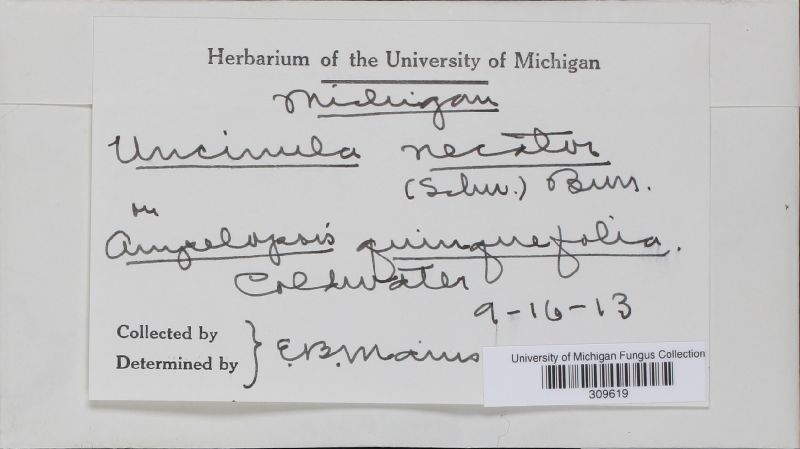 Herbarium of the University of Michigan
Michigan
Uncinula necator
(Schw.) Burr.
on
Ampelopsis quinquefolia.
Coldwater
9-16-13
Collected by
Determined by
E.B. Mains
University of Michigan Fungus Collection
309619